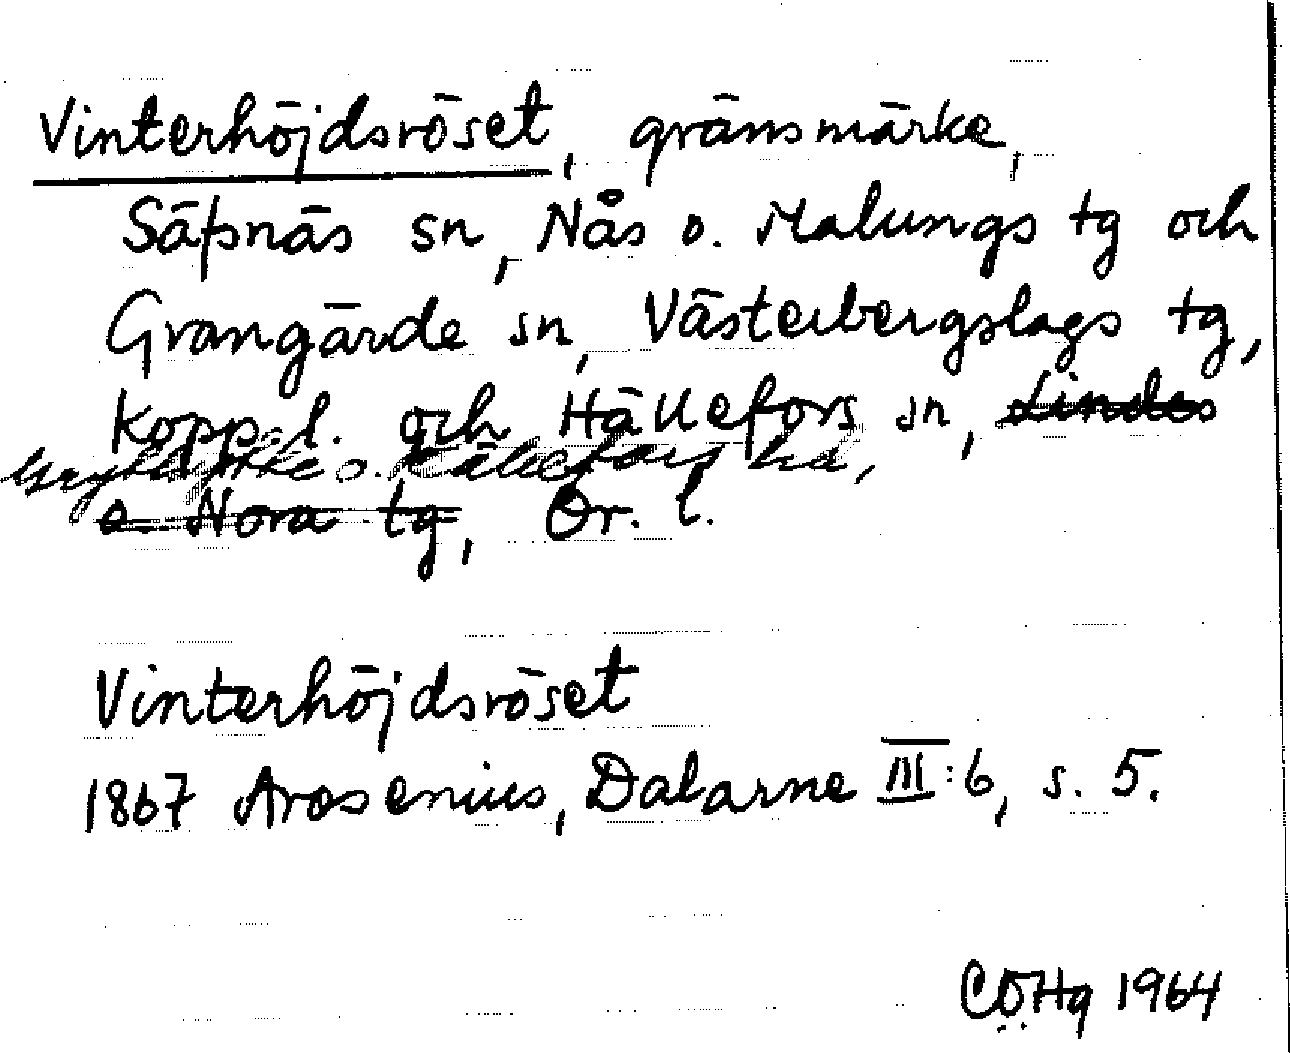 Vinterhöjdsröset, gränsmärke,
Säfsnäs sn, Nås o. Malungs tg och
Grangärde sn, Västerbergslags tg,
Kopp. l. och Hällefors sn, Lindes
Grythytte o. Hällefors hd,
o. Nora tg, Ör. l.
Vinterhöjdsröset
1867 Arosenius, Dalarne III:6, s. 5.
CÖHg 1964